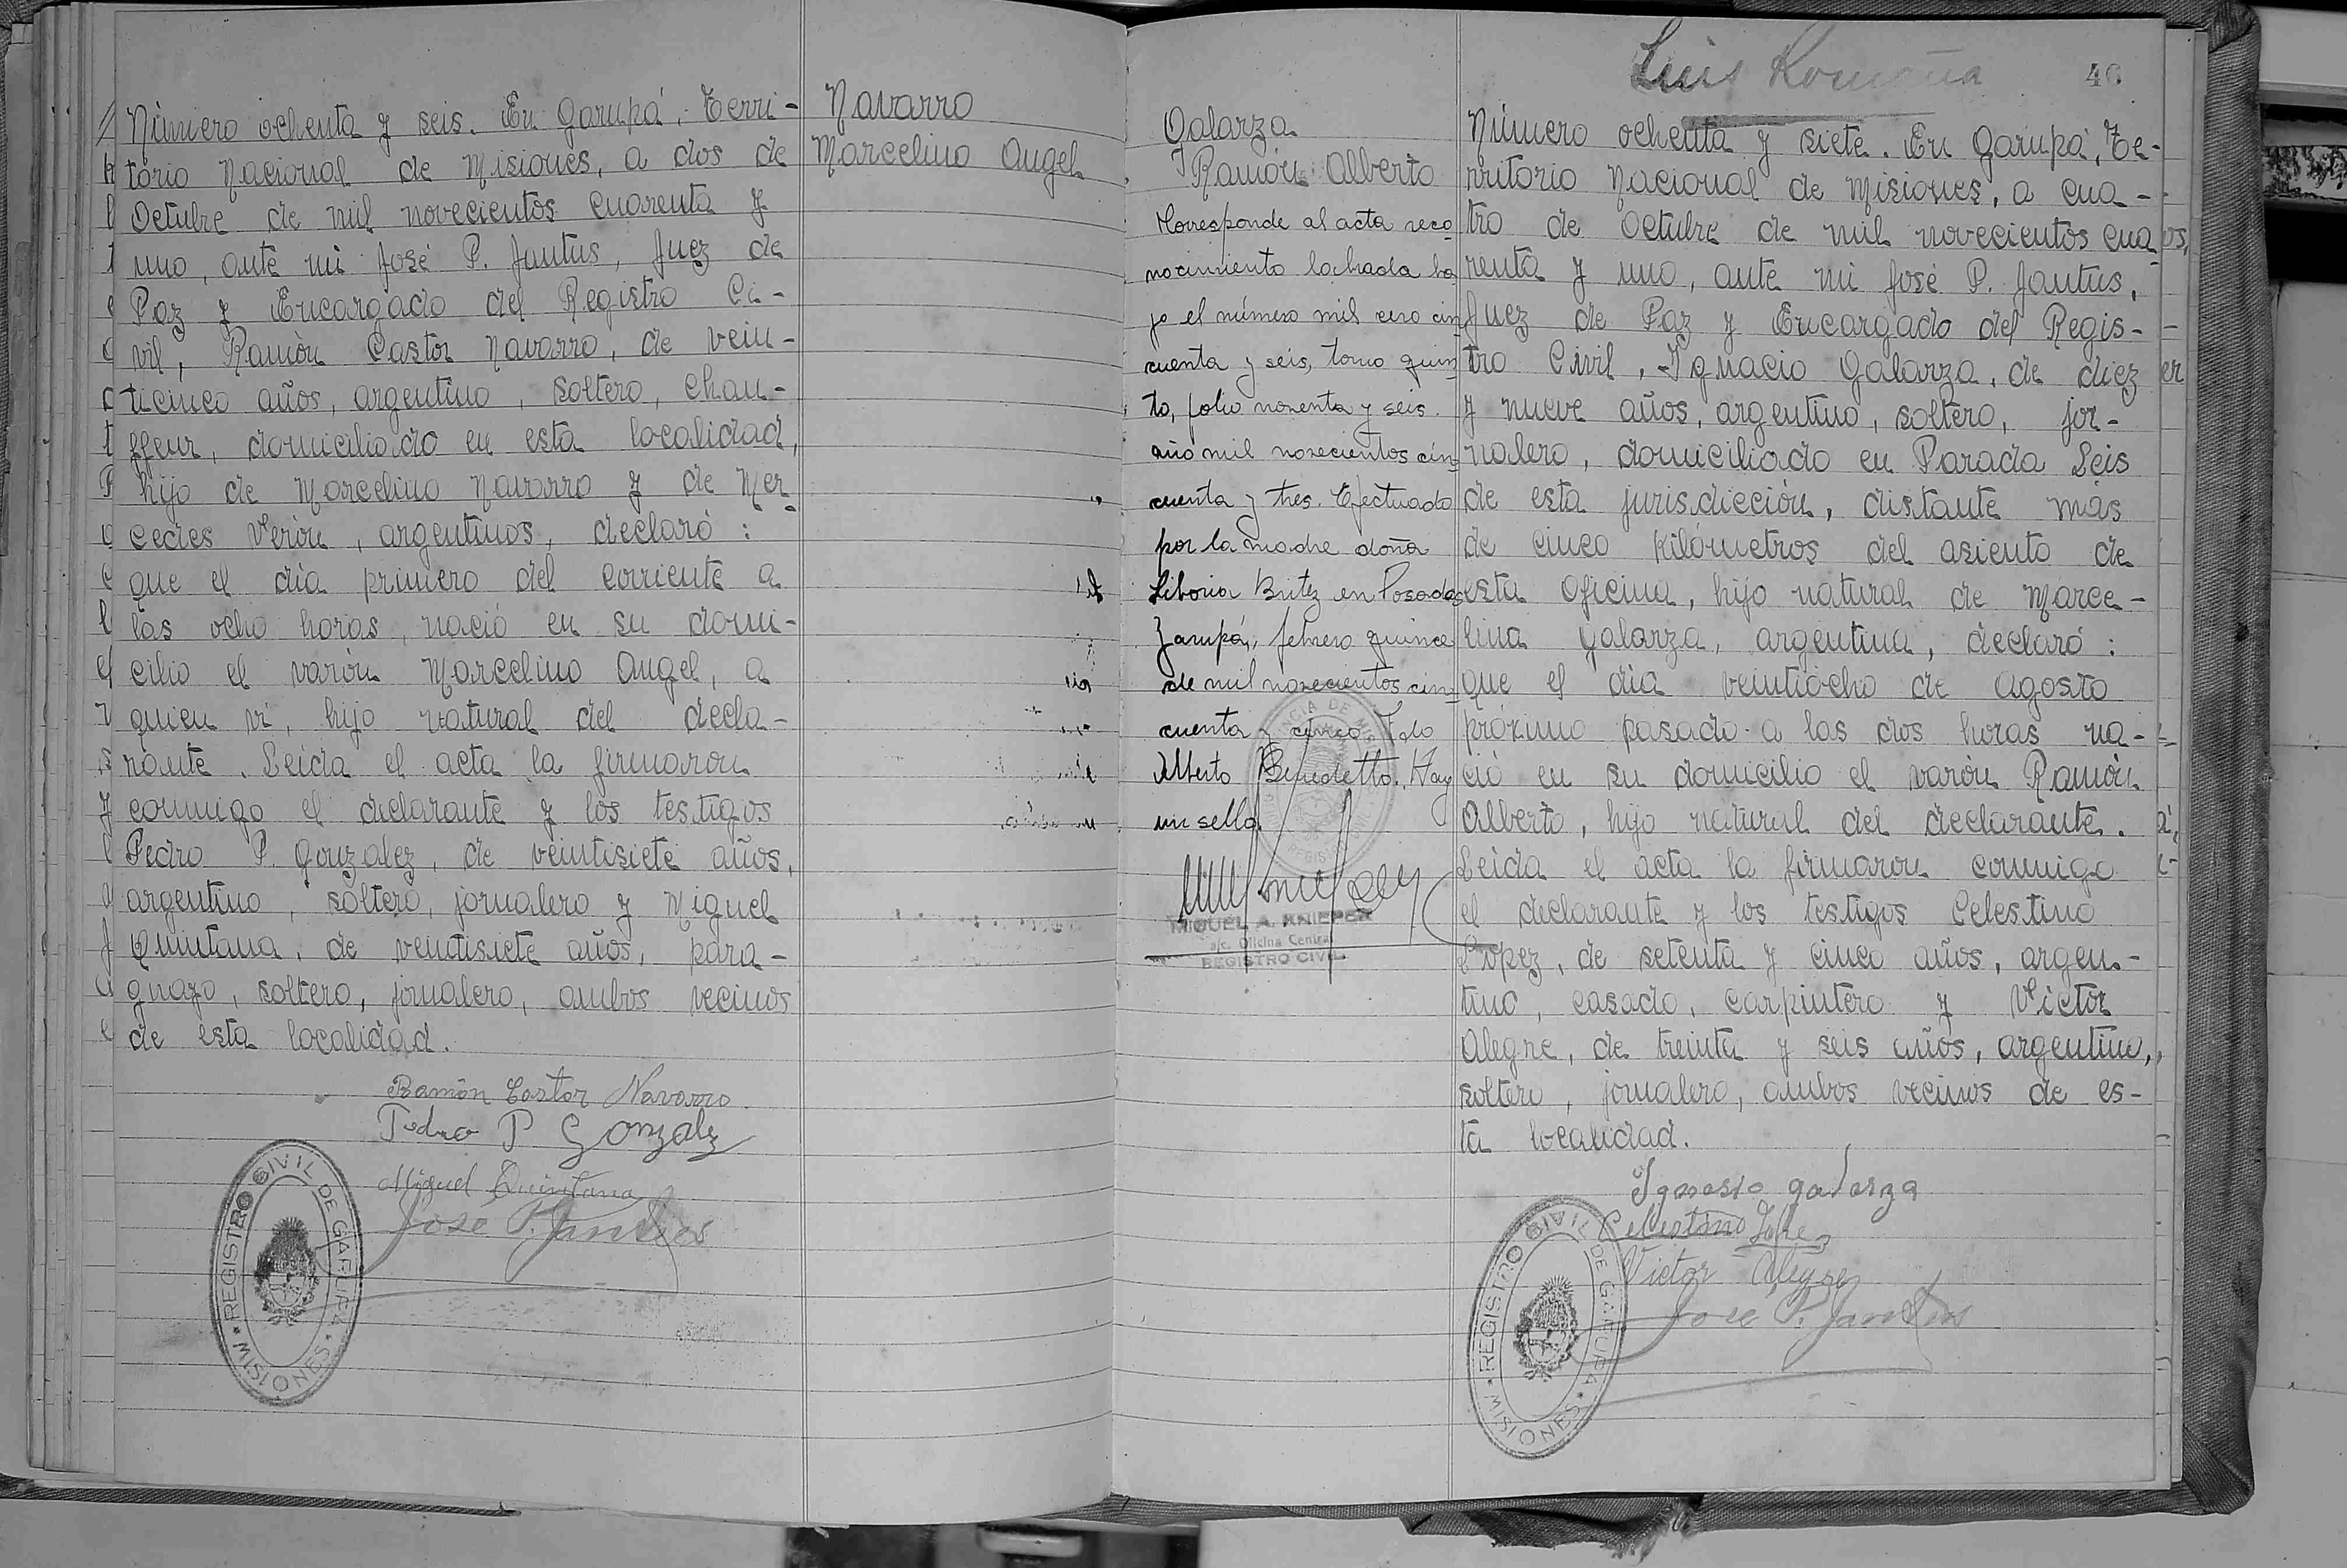 Número ochenta y seis. En Garupá, Terri-
torio Nacional de Misiones, a dos de
Octubre de mil novecientos cuarenta y
uno, ante mi José P. Jantus, Juez de
Paz y Encargado del Registro Ci-
vil, Ramòn Castor Navarro, de vein-
ticinco años, argentino, soltero, chau-
ffeur, domiciliado en esta localidad,
hijo de Marcelino Navarro y de Mer
cedes Veròn, argentinos, declarò:
que el dìa primero del corriente a
las ocho horas, naciò en su domi-
cilio el varòn Marcelino Angel, a
quien vi, hijo natural del decla-
rante. Leida el acta la firmaron
conmigo el declarante y los testigos
Pedro P. Gonzalez, de veintisiete años,
argentino, soltero, jornalero y Miguel
Quintana, de veintisiete años, para-
guayo, soltero, jornalero, ambos vecinos
de esta localidad.
Ramón Castor Navarro
Pedro P Gonzalez
Miguel Quintana
José P. Jantus
REGISTRO CIVIL DE GARUPA
MISIONES
Navarro
Marcelino Angel
Galarza
Ramòn Alberto
Corresponde al acta reco
nocimiento labrada ba
jo el número mil cero cin
cuenta y seis, tomo quin
to, folio noventa y seis.
año mil novecientos cin
cuenta y tres. Efectuado
por la madre doña
Liboria Britez en Posadas
Garupá, febrero quince
de mil novecientos cin
cuenta y cinco Fdo
Alberto Benedetto. Hay
un sello.
MIGUEL A. KNIEPER
a/c. Oficina Central
REGISTRO CIVIL
Luis Romaña
46
Número ochenta y siete. En Garupá, Te-
rritorio Nacional de Misiones, a cua-
tro de Octubre de mil novecientos cua
renta y uno, ante mi José P. Jantus,
Juez de Paz y Encargado del Regis-
tro Civil, Ignacio Galarza, de diez
y nueve años, argentino, soltero, jor-
nalero, domiciliado en Parada Leis
de esta jurisdicciòn, distante màs
de cinco Kilòmetros del asiento de
esta Oficina, hijo natural de Marce-
lina Galarza, argentina, declarò:
que el dìa veintiocho de Agosto
pròximo pasado a las dos horas na-
ciò en su domicilio el varòn Ramòn
Alberto, hijo natural del declarante.
Leida el acta la firmaron conmigo
el declarante y los testigos Celestino
Lopez, de setenta y cinco años, argen-
tino, casado, carpintero y Victor
Alegre, de treinta y seis años, argentino,
soltero, jornalero, ambos vecinos de es-
ta localidad.
Ignasio galarza
Celestino Lopez
Victor Alegre
Jose P. Jantus
REGISTRO CIVIL DE GARUPA
MISIONES